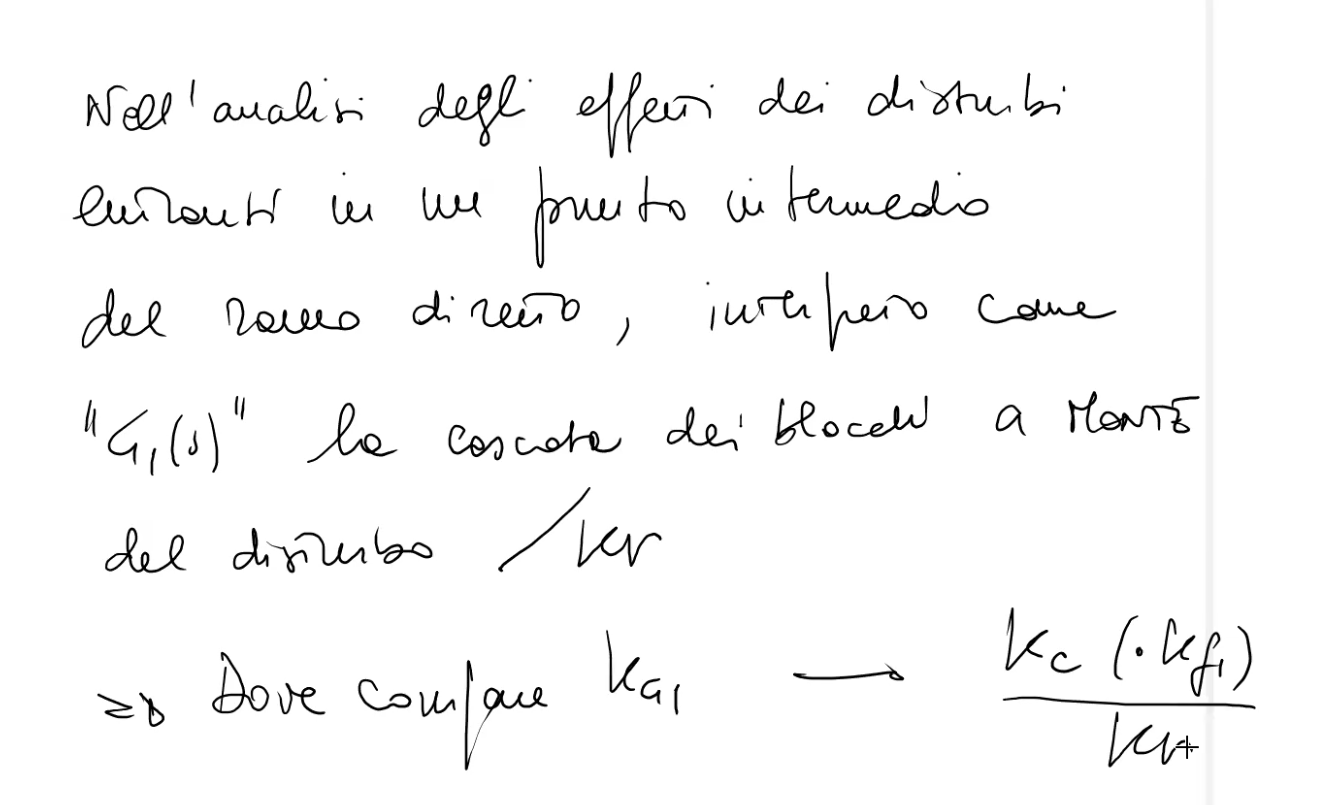 Nell'analisi degli effetti dei disturbi
entranti in un punto intermedio
del ramo diretto, interpreto come
"G₁(s)" la cascata dei blocchi a MONTE
del disturbo / Kr
⇒ Dove compare K_G1 → K_c (· K_f1) / Kr